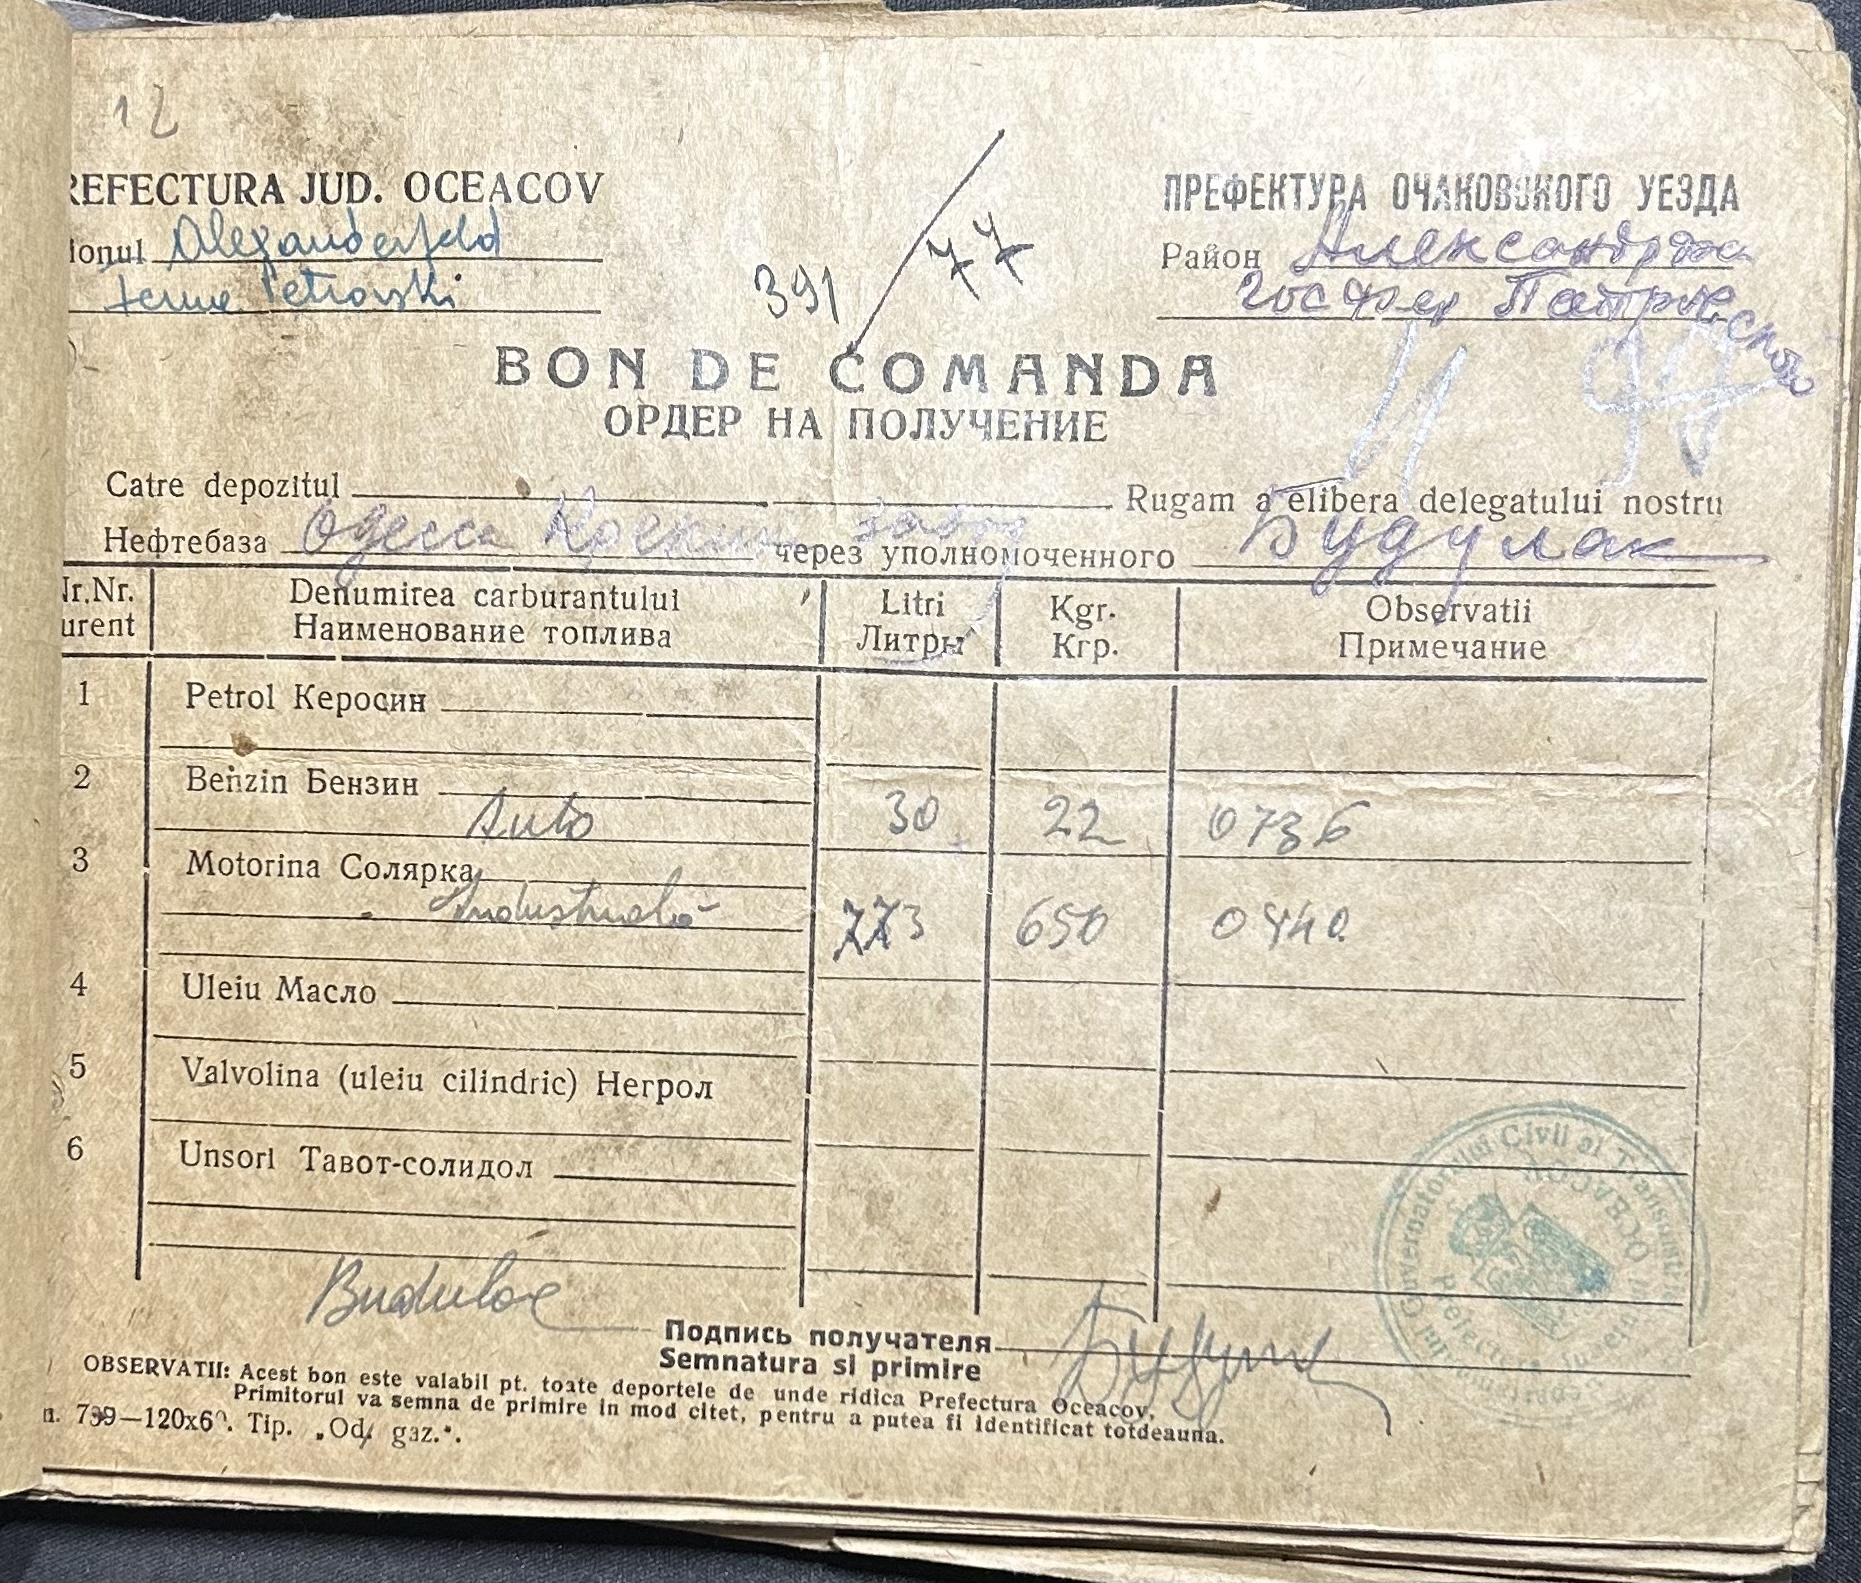 12
REFECTURA JUD. OCEACOV
ПРЕФЕКТУРА ОЧАКОВСКОГО УЕЗДА
ionul Alexanderfeld
Район
ferme Petrovski
391
77
BON DE COMANDA
ОРДЕР НА ПОЛУЧЕНИЕ
Catre depozitul Rugam a elibera delegatului nostru
Нефтебаза Одесса Крекинг завод через уполномоченного Будулак
Nr.Nr. Denumirea carburantului Litri Kgr. Observatii
urent Наименование топлива Литры Кгр. Примечание
1 Petrol Керосин
2 Benzin Бензин
Auto 30 22 0736
3 Motorina Солярка
Industrială 773 650 0840
4 Uleiu Масло
5 Valvolina (uleiu cilindric) Негрол
6 Unsori Тавот-солидол
Budulac
Подпись получателя
Semnatura si primire
OBSERVATII: Acest bon este valabil pt. toate deportele de unde ridica Prefectura Oceacov,
Primitorul va semna de primire in mod citet, pentru a putea fi identificat totdeauna.
n. 799—120x60. Tip. „Od. gaz.".
Guvernatorului Civil al Transnistriei
OCEACOV